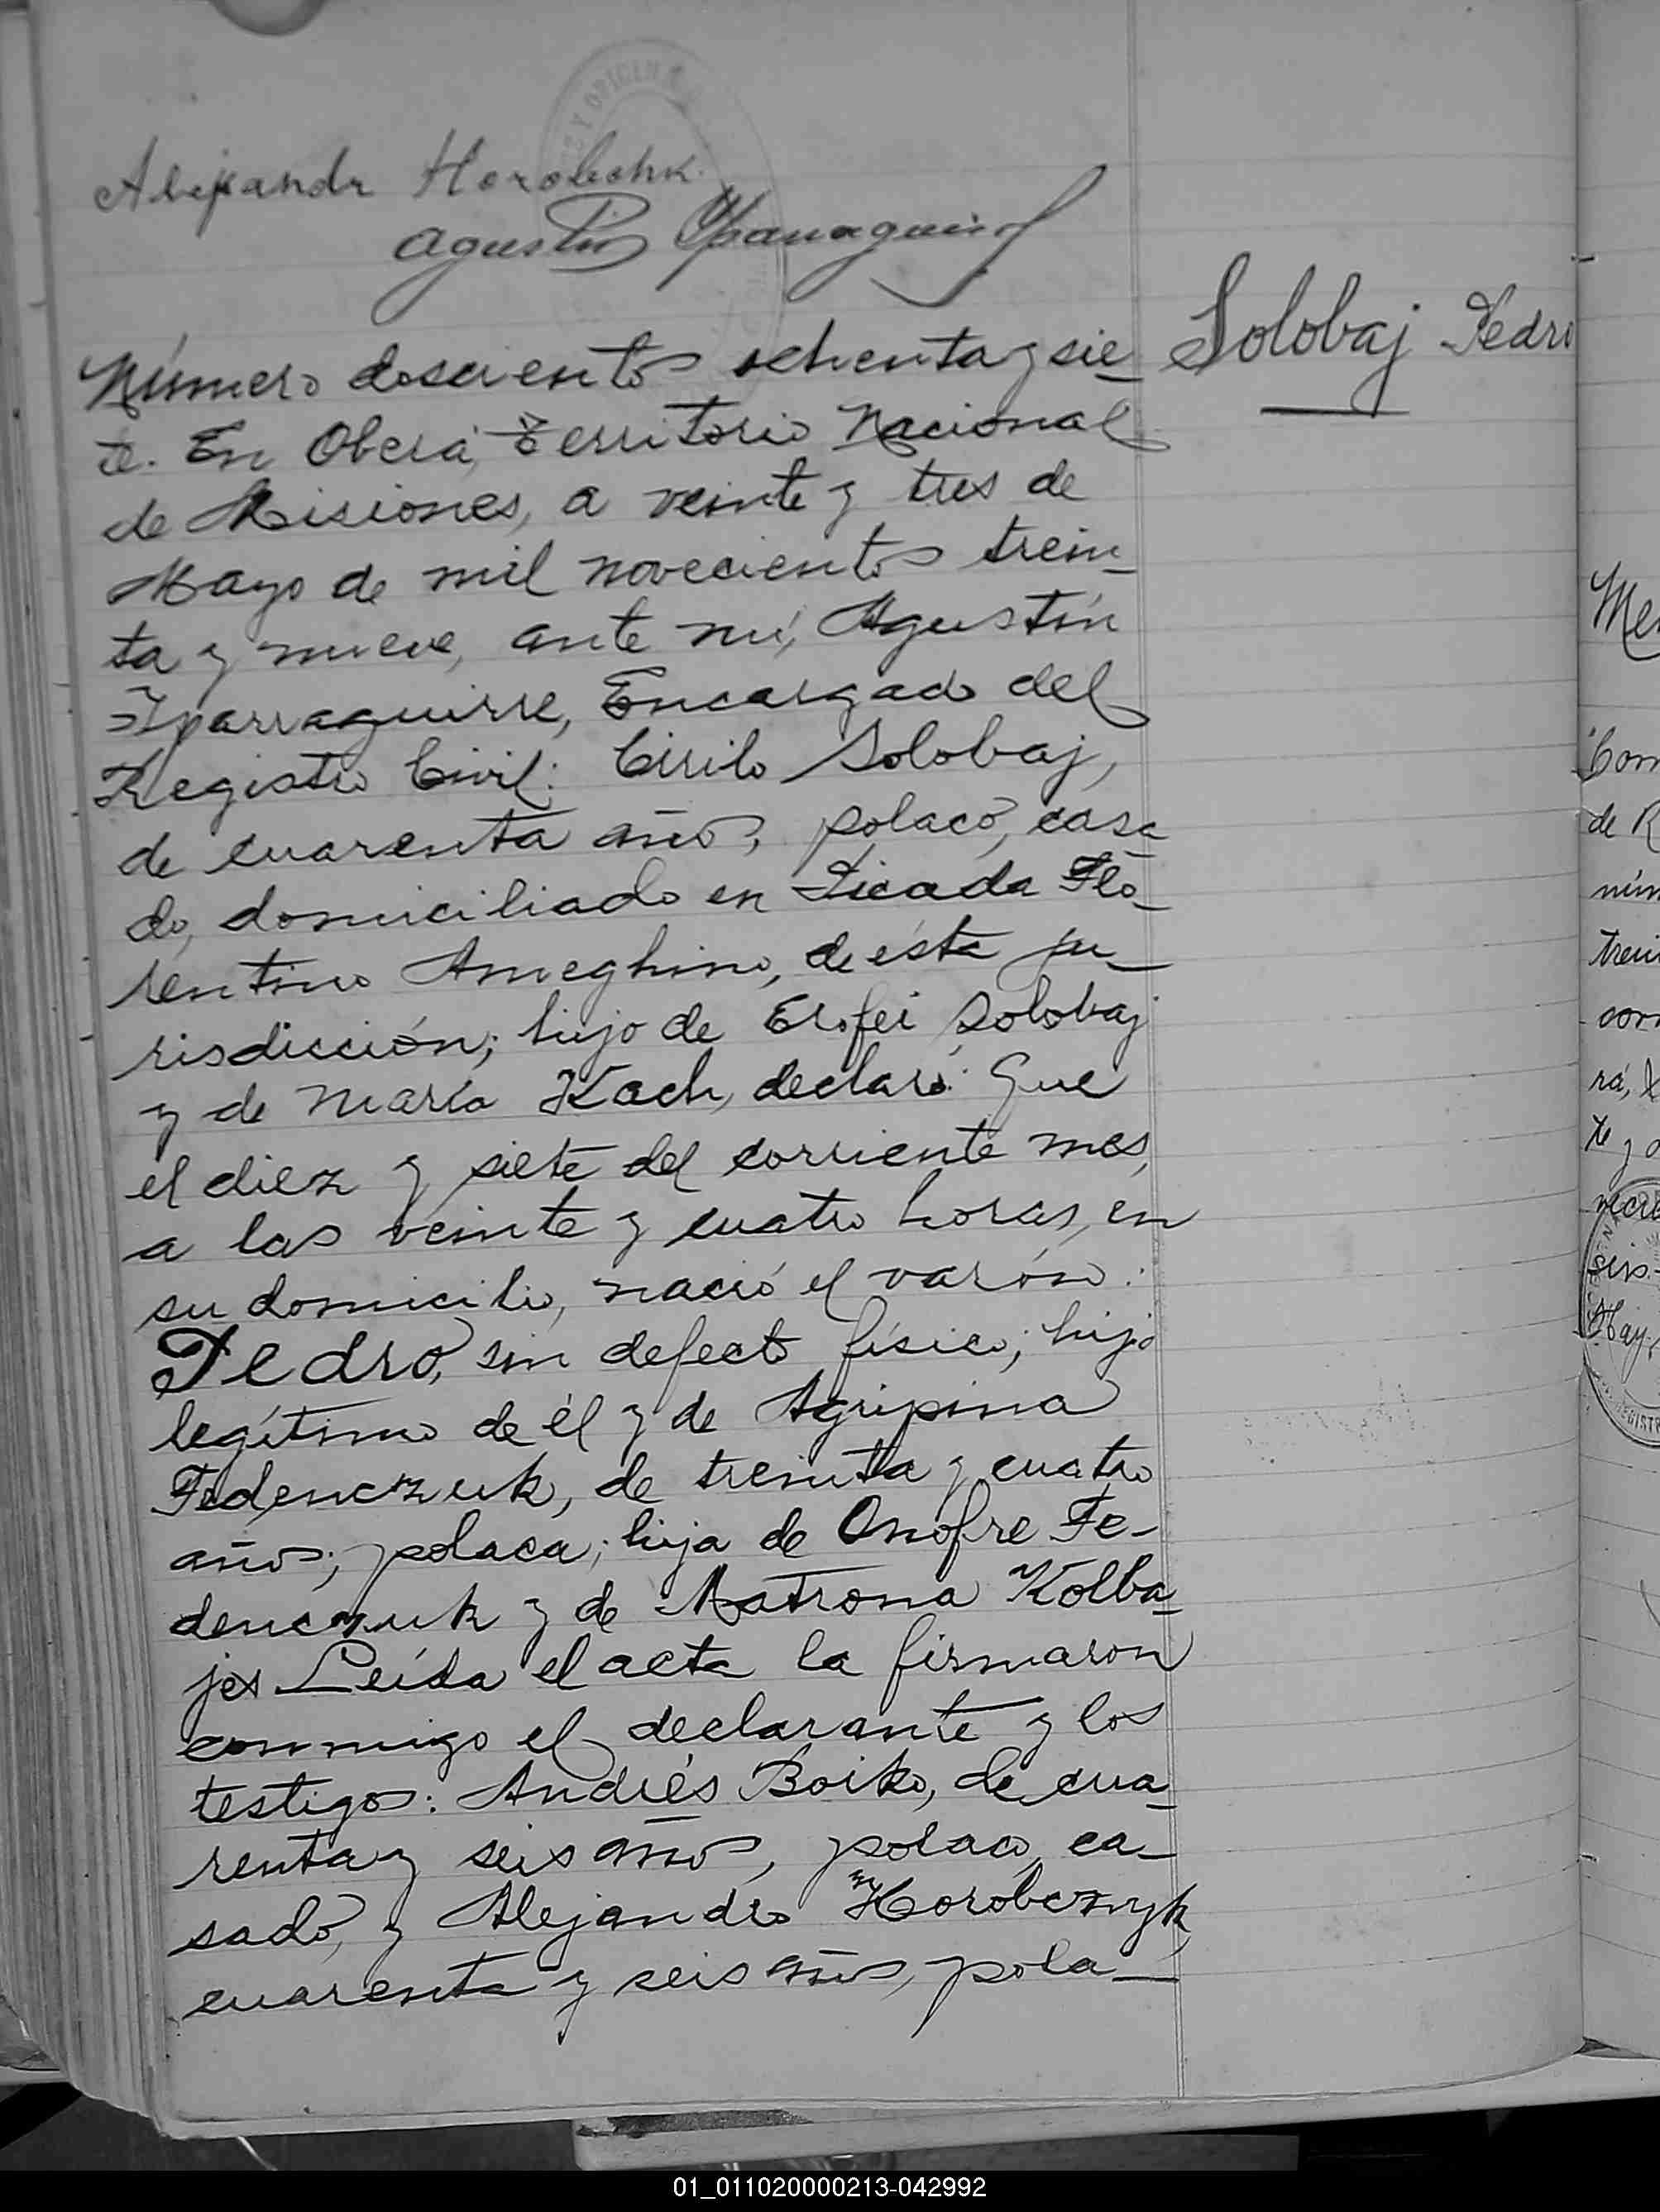 Alejandr Horobchk.
Agustín Yparraguirre
Solobaj Pedro
Número doscientos ochenta y sie-
te. En Oberá, Territorio Nacional
de Misiones, a veinte y tres de
Mayo de mil novecientos trein-
ta y nueve, ante mí, Agustín
Yparraguirre, Encargado del
Registro Civil: Cirilo Solobaj,
de cuarenta años, polaco, casa-
do, domiciliado en Picada Flo-
rentino Ameghino, de ésta ju-
risdicción; hijo de Erofei Solobaj
y de María Kach, declaró: Que
el diez y siete del corriente mes,
a las veinte y cuatro horas, en
su domicilio, nació el varón:
Pedro, sin defecto físico; hijo
legítimo de él y de Agripina
Fedenczuk, de treinta y cuatro
años; polaca; hija de Onofre Fe-
denczuk y de Matrona Kolba-
jes Leída el acta la firmaron
conmigo el declarante y los
testigos: Andrés Boiko, de cua-
renta y seis años, polaco, ca-
sado, y Alejandro Horobcznyk,
cuarenta y seis años, pola-
Me
de R
núm
trein
corr
rá,
te y
sis
May
01_011020000213-042992